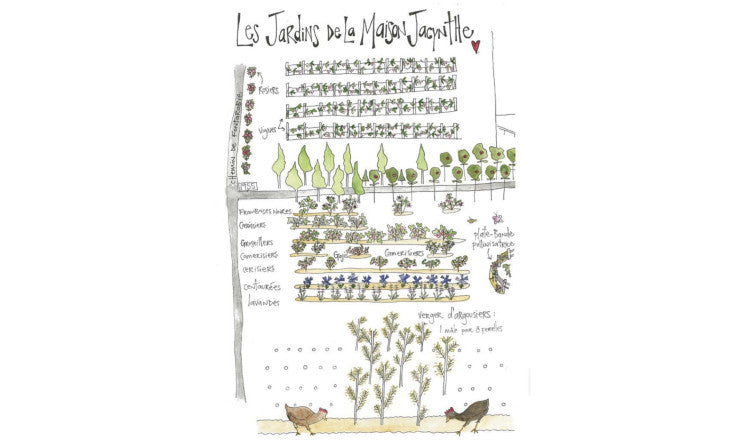 Les Jardins de la Maison Jacynthe
Rosiers
Vignes
CHEMIN DE FONTARABIE
1955
Framboises noires
Cassissiers
Groseillers
Camerisiers
Goji
Camerisiers
Cerisiers
Centaurées
Lavandes
plate-Bande
pollinisatrice
Verger d'argousiers :
1 mâle pour 8 femelles